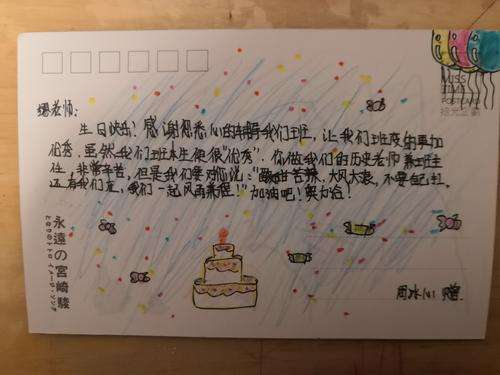 老师：
生日快乐！感谢您悉心的辅导我们班，让我们班变的更加
优秀，虽然我们班本生便很“优秀”，你做我们的历史老师兼班主
任，非常辛苦，但是我们要对你说：“酸甜苦辣，大风大浪，不要自己扛，
还有我们在，我们一起风雨兼程！”加油吧！奥力给！
周冰心 赠
永遠の宮崎駿
MISS
TIME